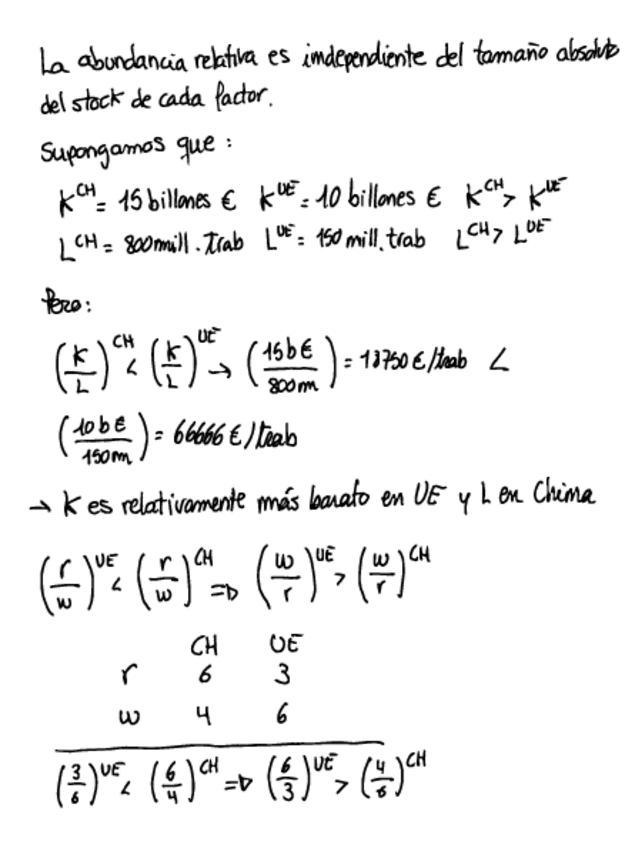 La abundancia relativa es independiente del tamaño absoluto
del stock de cada factor.
Supongamos que :
K^CH = 15 billones € K^UE = 10 billones € K^CH > K^UE
L^CH = 800 mill. Trab L^UE = 150 mill. trab L^CH > L^UE
Pero:
(K/L)^CH < (K/L)^UE → (15b€/800m) = 18750 €/trab <
(10b€/150m) = 66666 €/trab
→ K es relativamente más barato en UE y L en China
(r/w)^UE < (r/w)^CH => (w/r)^UE > (w/r)^CH
CH UE
r 6 3
w 4 6
(3/6)^UE < (6/4)^CH => (6/3)^UE > (4/6)^CH